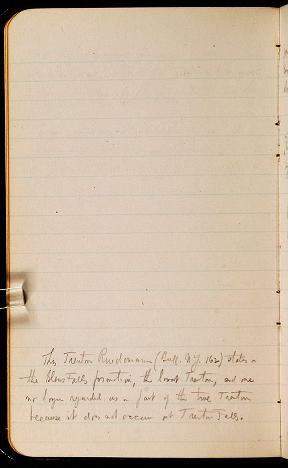 This Trenton Ruedemann (Bull. N.Y. 162) states
the Glens Falls formation, the lowest Trenton, and one
no longer regarded as a part of the true Trenton
because it does not occur at Trenton Falls.